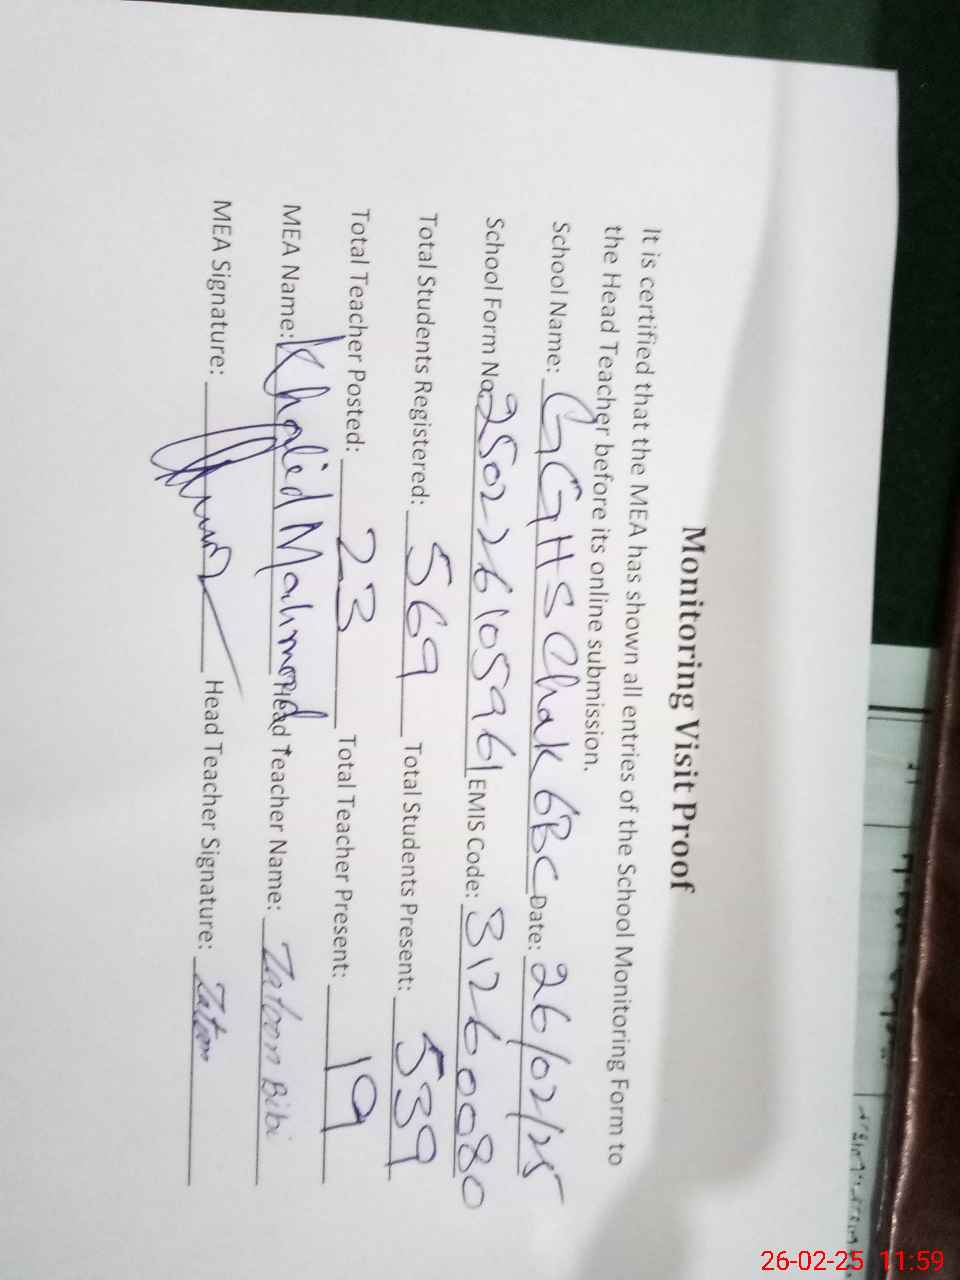 Monitoring Visit Proof
It is certified that the MEA has shown all entries of the School Monitoring Form to
the Head Teacher before its online submission.
School Name: GGHS Chak 6BC Date: 26/02/25
School Form No: 250226105961 EMIS Code: 31260080
Total Students Registered: 569 Total Students Present: 539
Total Teacher Posted: 23 Total Teacher Present: 19
MEA Name: Khalid Mahmood Head Teacher Name: Zatoon Bibi
MEA Signature: Head Teacher Signature: Zatoon
26-02-25 11:59